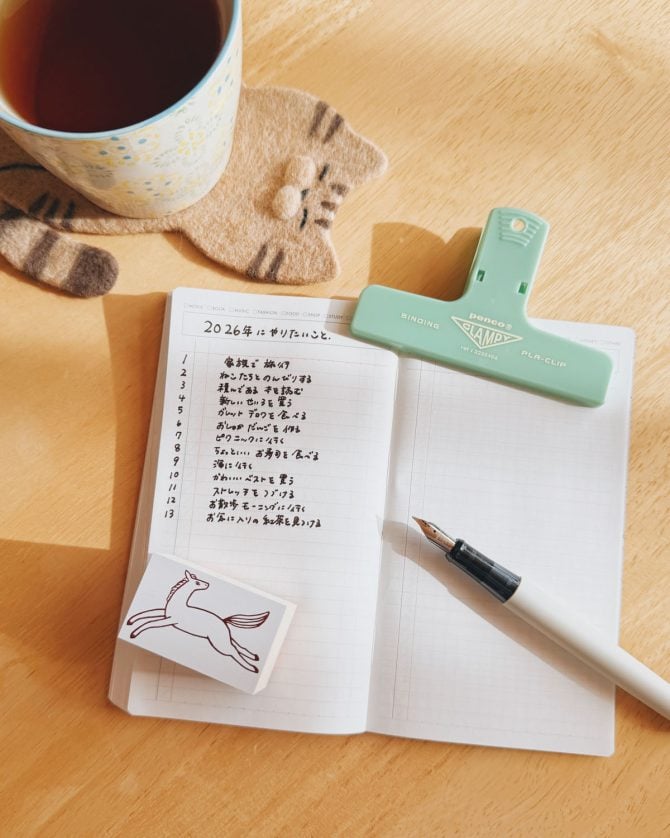 2026年にやりたいこと.
1 家族で旅行
2 ねこたちとのんびりする
3 積んである本を読む
4 新しいせいろを買う
5 ガレットデロワを食べる
6 おしゅかだんごを作る
7 ピクニックに行く
8 ちょっといいお寿司を食べる
9 海に行く
10 かわいいベストを買う
11 ストレッチをつづける
12 お散歩モーニングに行く
13 お気に入りの紅茶を見つける
penco®
BINDING CLAMPY PLA-CLIP
□MOVIE □BOOK □MUSIC □FASHION □FOOD □SHOP □STUDY